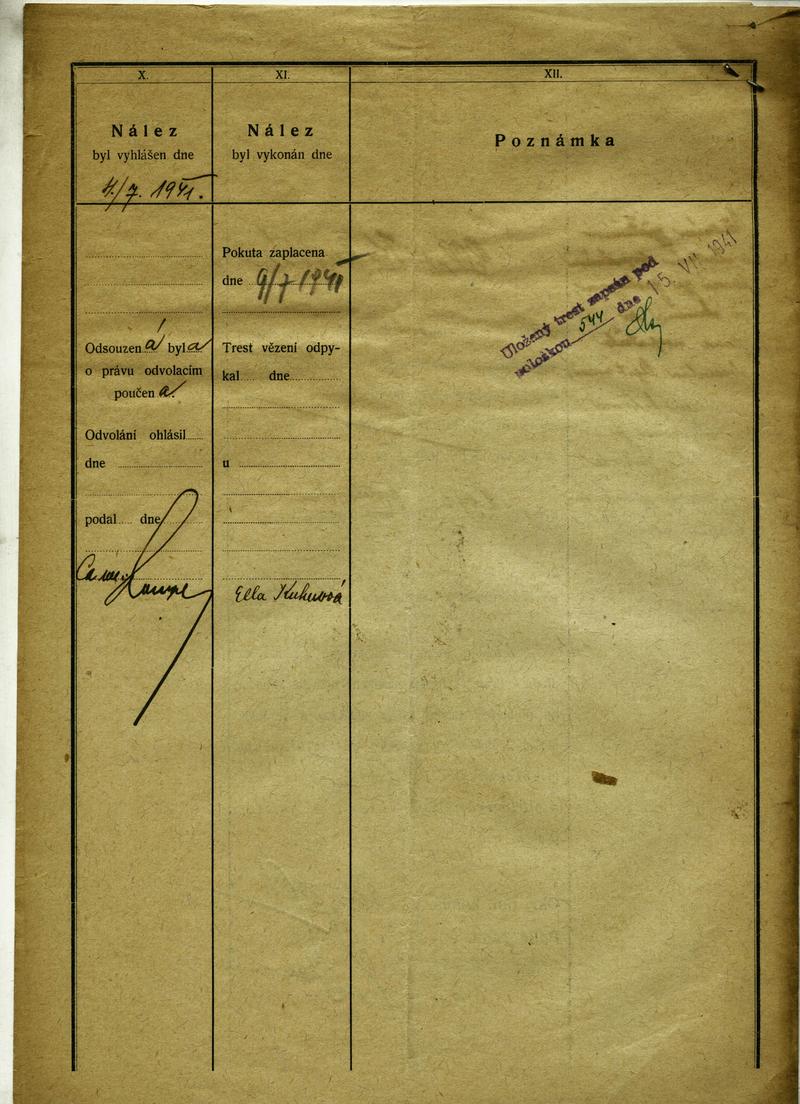 X.
Nález
byl vyhlášen dne
4./7. 1941.
Odsouzená byla
o právu odvolacím
poučena.
Odvolání ohlásil
dne
podal dne
XI.
Nález
byl vykonán dne
Pokuta zaplacena
dne 9/7 1941
Trest vězení odpy-
kal dne
u
Ella
XII.
Poznámka
Uložený trest zapsán pod
položkou 544 dne 15. VII 1941